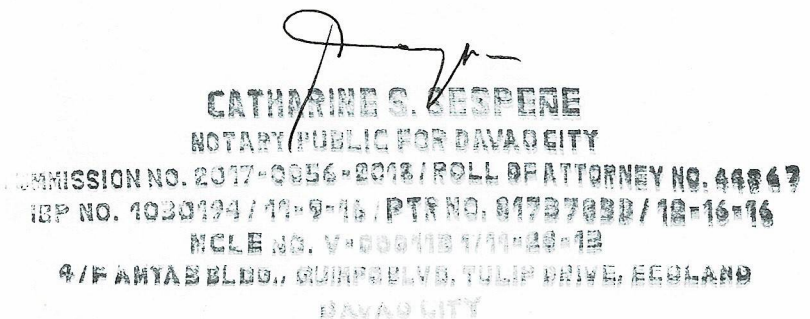 CATHARINE S.
NOTARY PUBLIC FOR DAVAO CITY
COMMISSION NO. 2017-0056-2018 / ROLL OF ATTORNEY NO.
IBP NO. 1030194 / 11-9-16 / PTR NO. / 12-16-16
MCLE NO.
4/F AMYA BLDG., QUIMPO BLVD, TULIP DRIVE, ECOLAND
DAVAO CITY